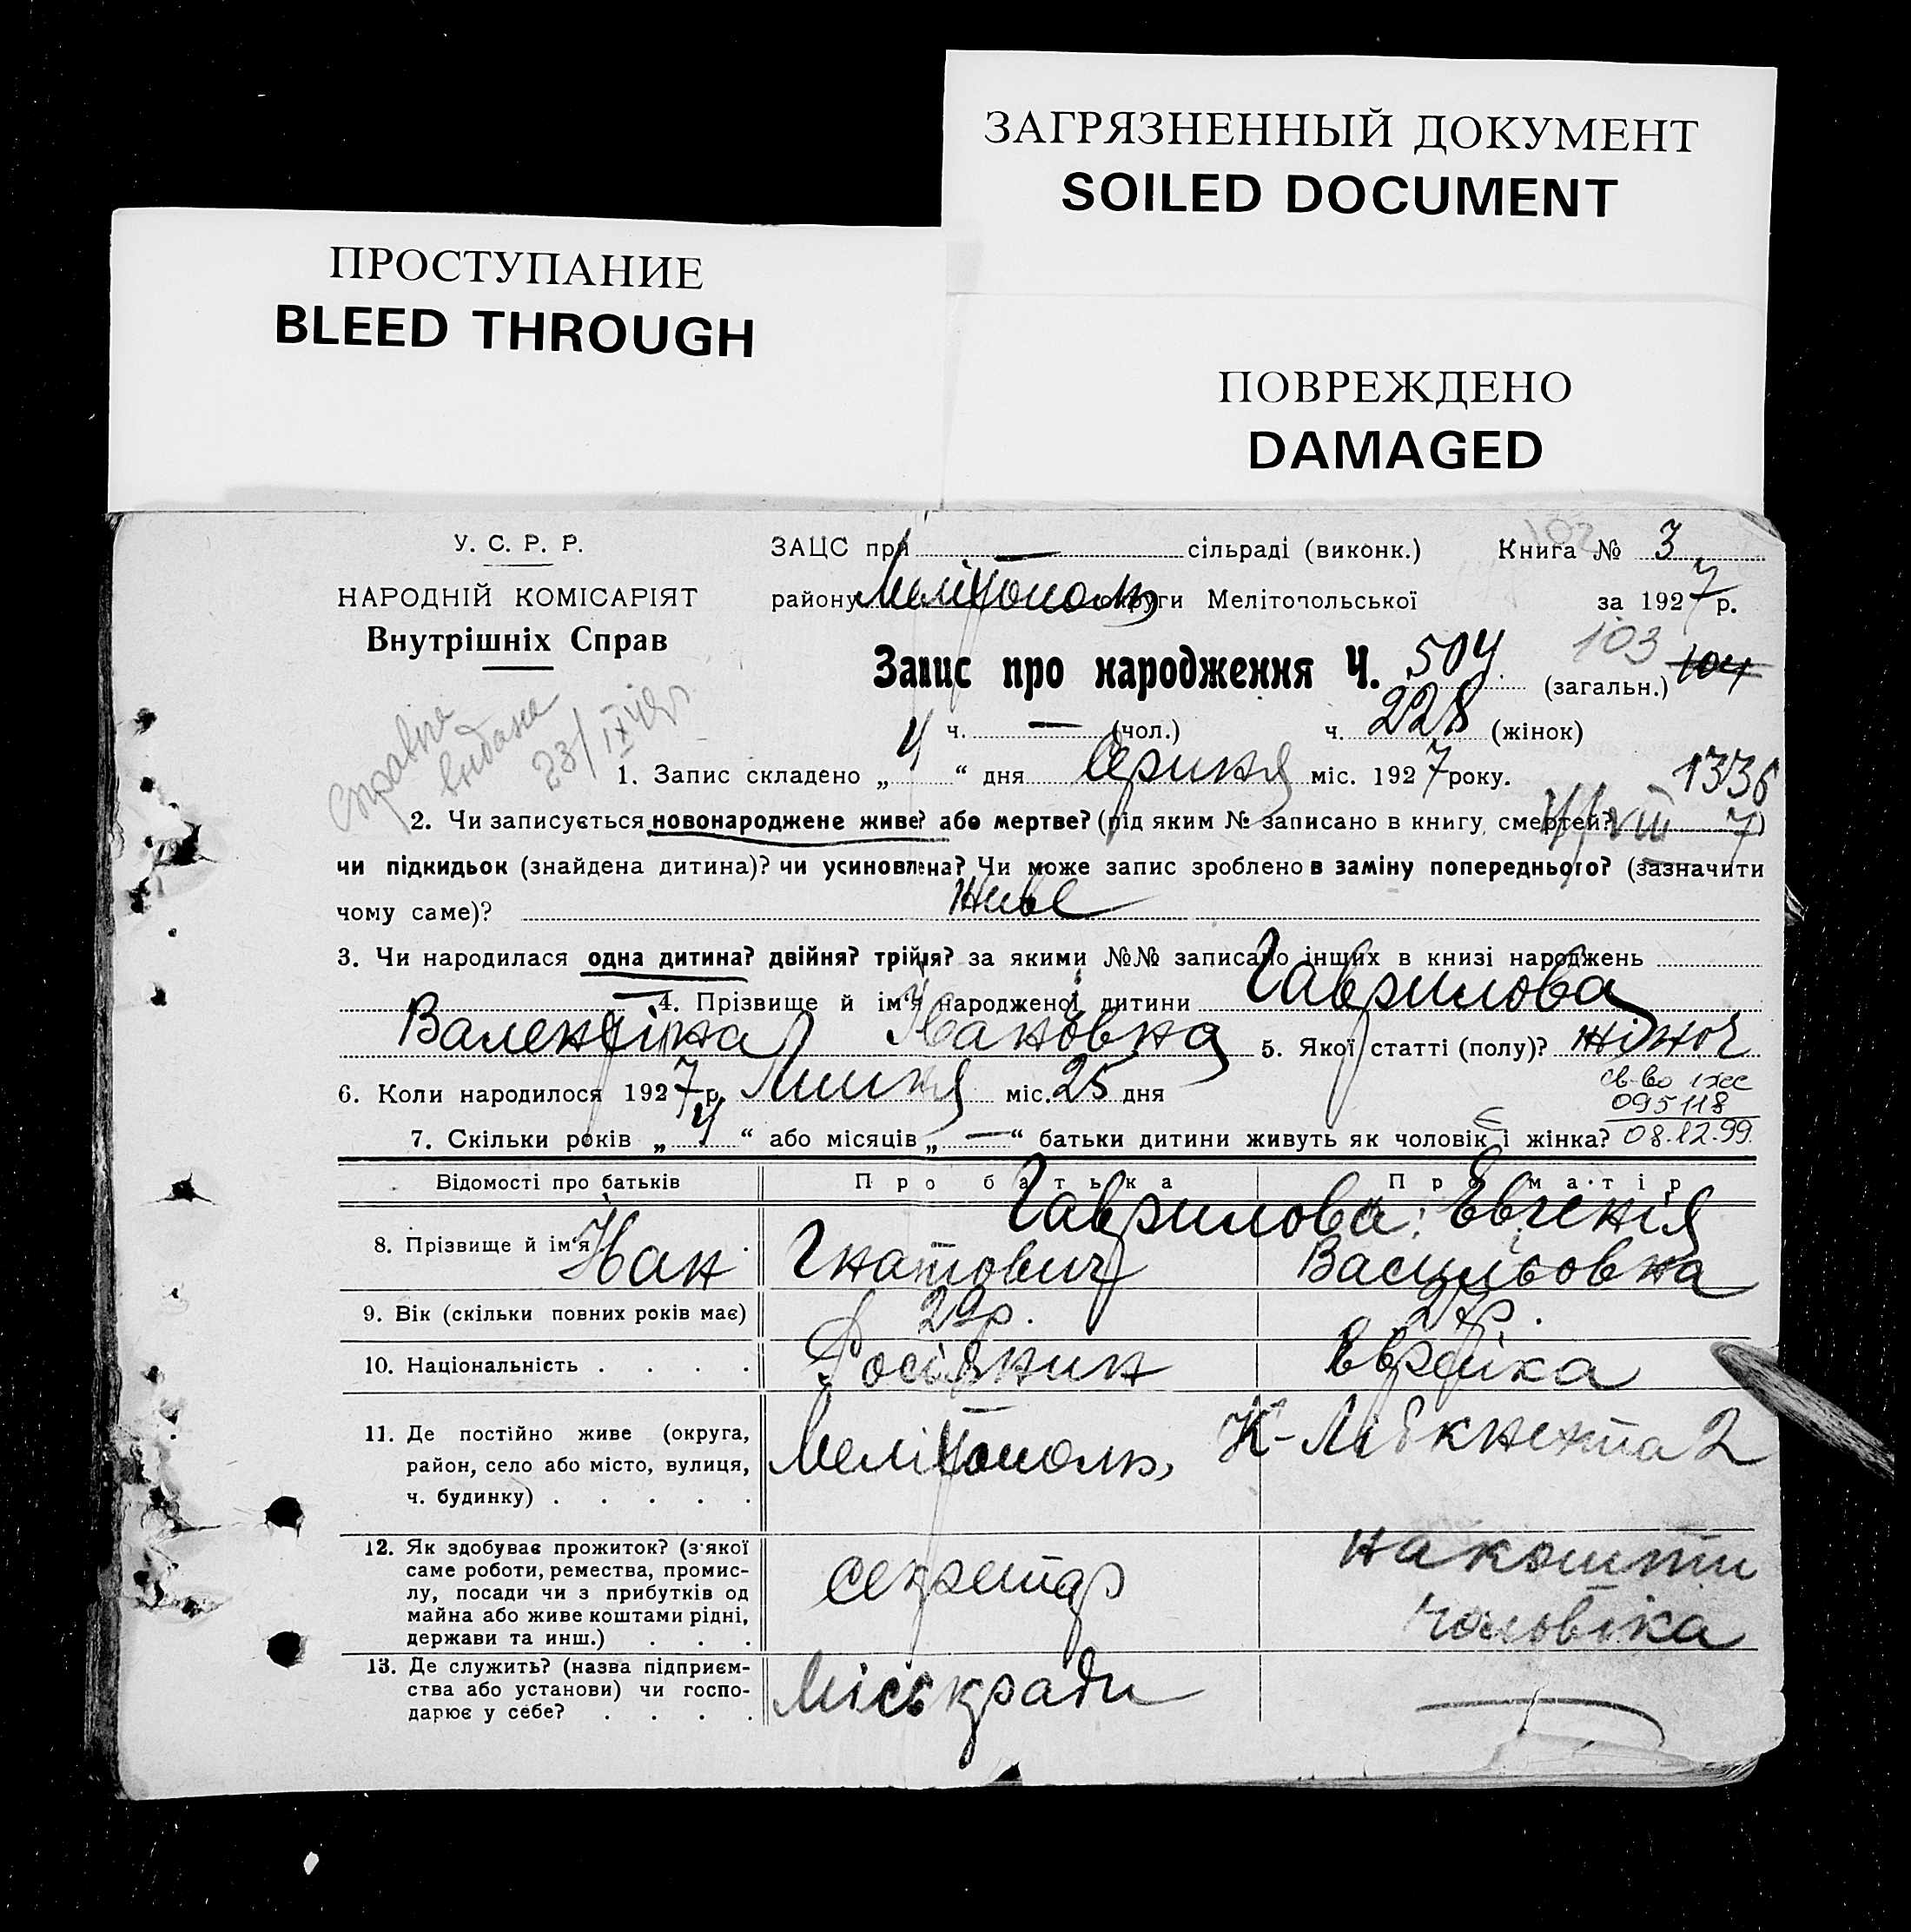 ЗАГРЯЗНЕННЫЙ ДОКУМЕНТ
SOILED DOCUMENT
ПРОСТУПАНИЕ
BLEED THROUGH
ПОВРЕЖДЕНО
DAMAGED
У. С. Р. Р.
НАРОДНІЙ КОМІСАРІЯТ
Внутрішніх Справ
102
ЗАЦС при — сільраді (виконк.) Книга № 3
району Мелітополь округи Мелітопольської за 1927 р.
Запис про народження Ч. 504 (загальн.) 103 104
ч. — (чол.) ч. 228 (жінок)
Справка
видана
23/IX
1. Запис складено „4“ дня Серпня міс. 1927 року.
1336
2. Чи записується новонароджене живе? або мертве? (під яким № записано в книгу смертей? VIII 7)
чи підкидьок (знайдена дитина)? чи усиновлена? Чи може запис зроблено в заміну попереднього? (зазначити
чому саме)? живе
3. Чи народилася одна дитина? двійня? трійня? за якими №№ записано інших в книзі народжень
— 4. Прізвище й ім'я народженої дитини Гаврилова
Валентіна Івановна 5. Якої статті (полу)? жіноч
6. Коли народилося 1927 р. Липня міс. 25 дня
св-во 1 ЖС
095118
08.12.99
7. Скільки років „4“ або місяців „—“ батьки дитини живуть як чоловік і жінка?
Відомості про батьків Про батька Про матір
8. Прізвище й ім'я Гаврилова: Евгенія
Іван Гнатович Васильовна
9. Вік (скільки повних років має) 29р. 27р.
10. Національність . . . . Росіянин Еврейка
11. Де постійно живе (округа,
район, село або місто, вулиця,
ч. будинку) . . . . .
Мелітополь, К-Лібкнехта 2
12. Як здобуває прожиток? (з'якої
саме роботи, ремества, промис-
лу, посади чи з прибутків од
майна або живе коштами рідні,
держави та инш.) . . .
секретар
на кошти
чоловіка
13. Де служить? (назва підприєм-
ства або установи) чи госпо-
дарює у себе? . . . .
Міськради —